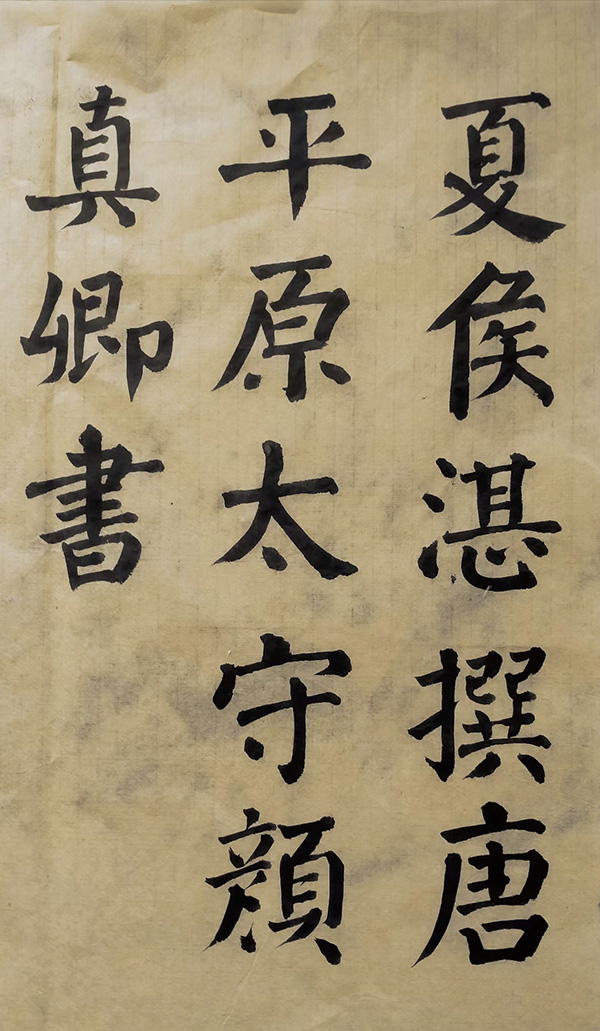 夏侯湛撰唐
平原太守顏
真卿書